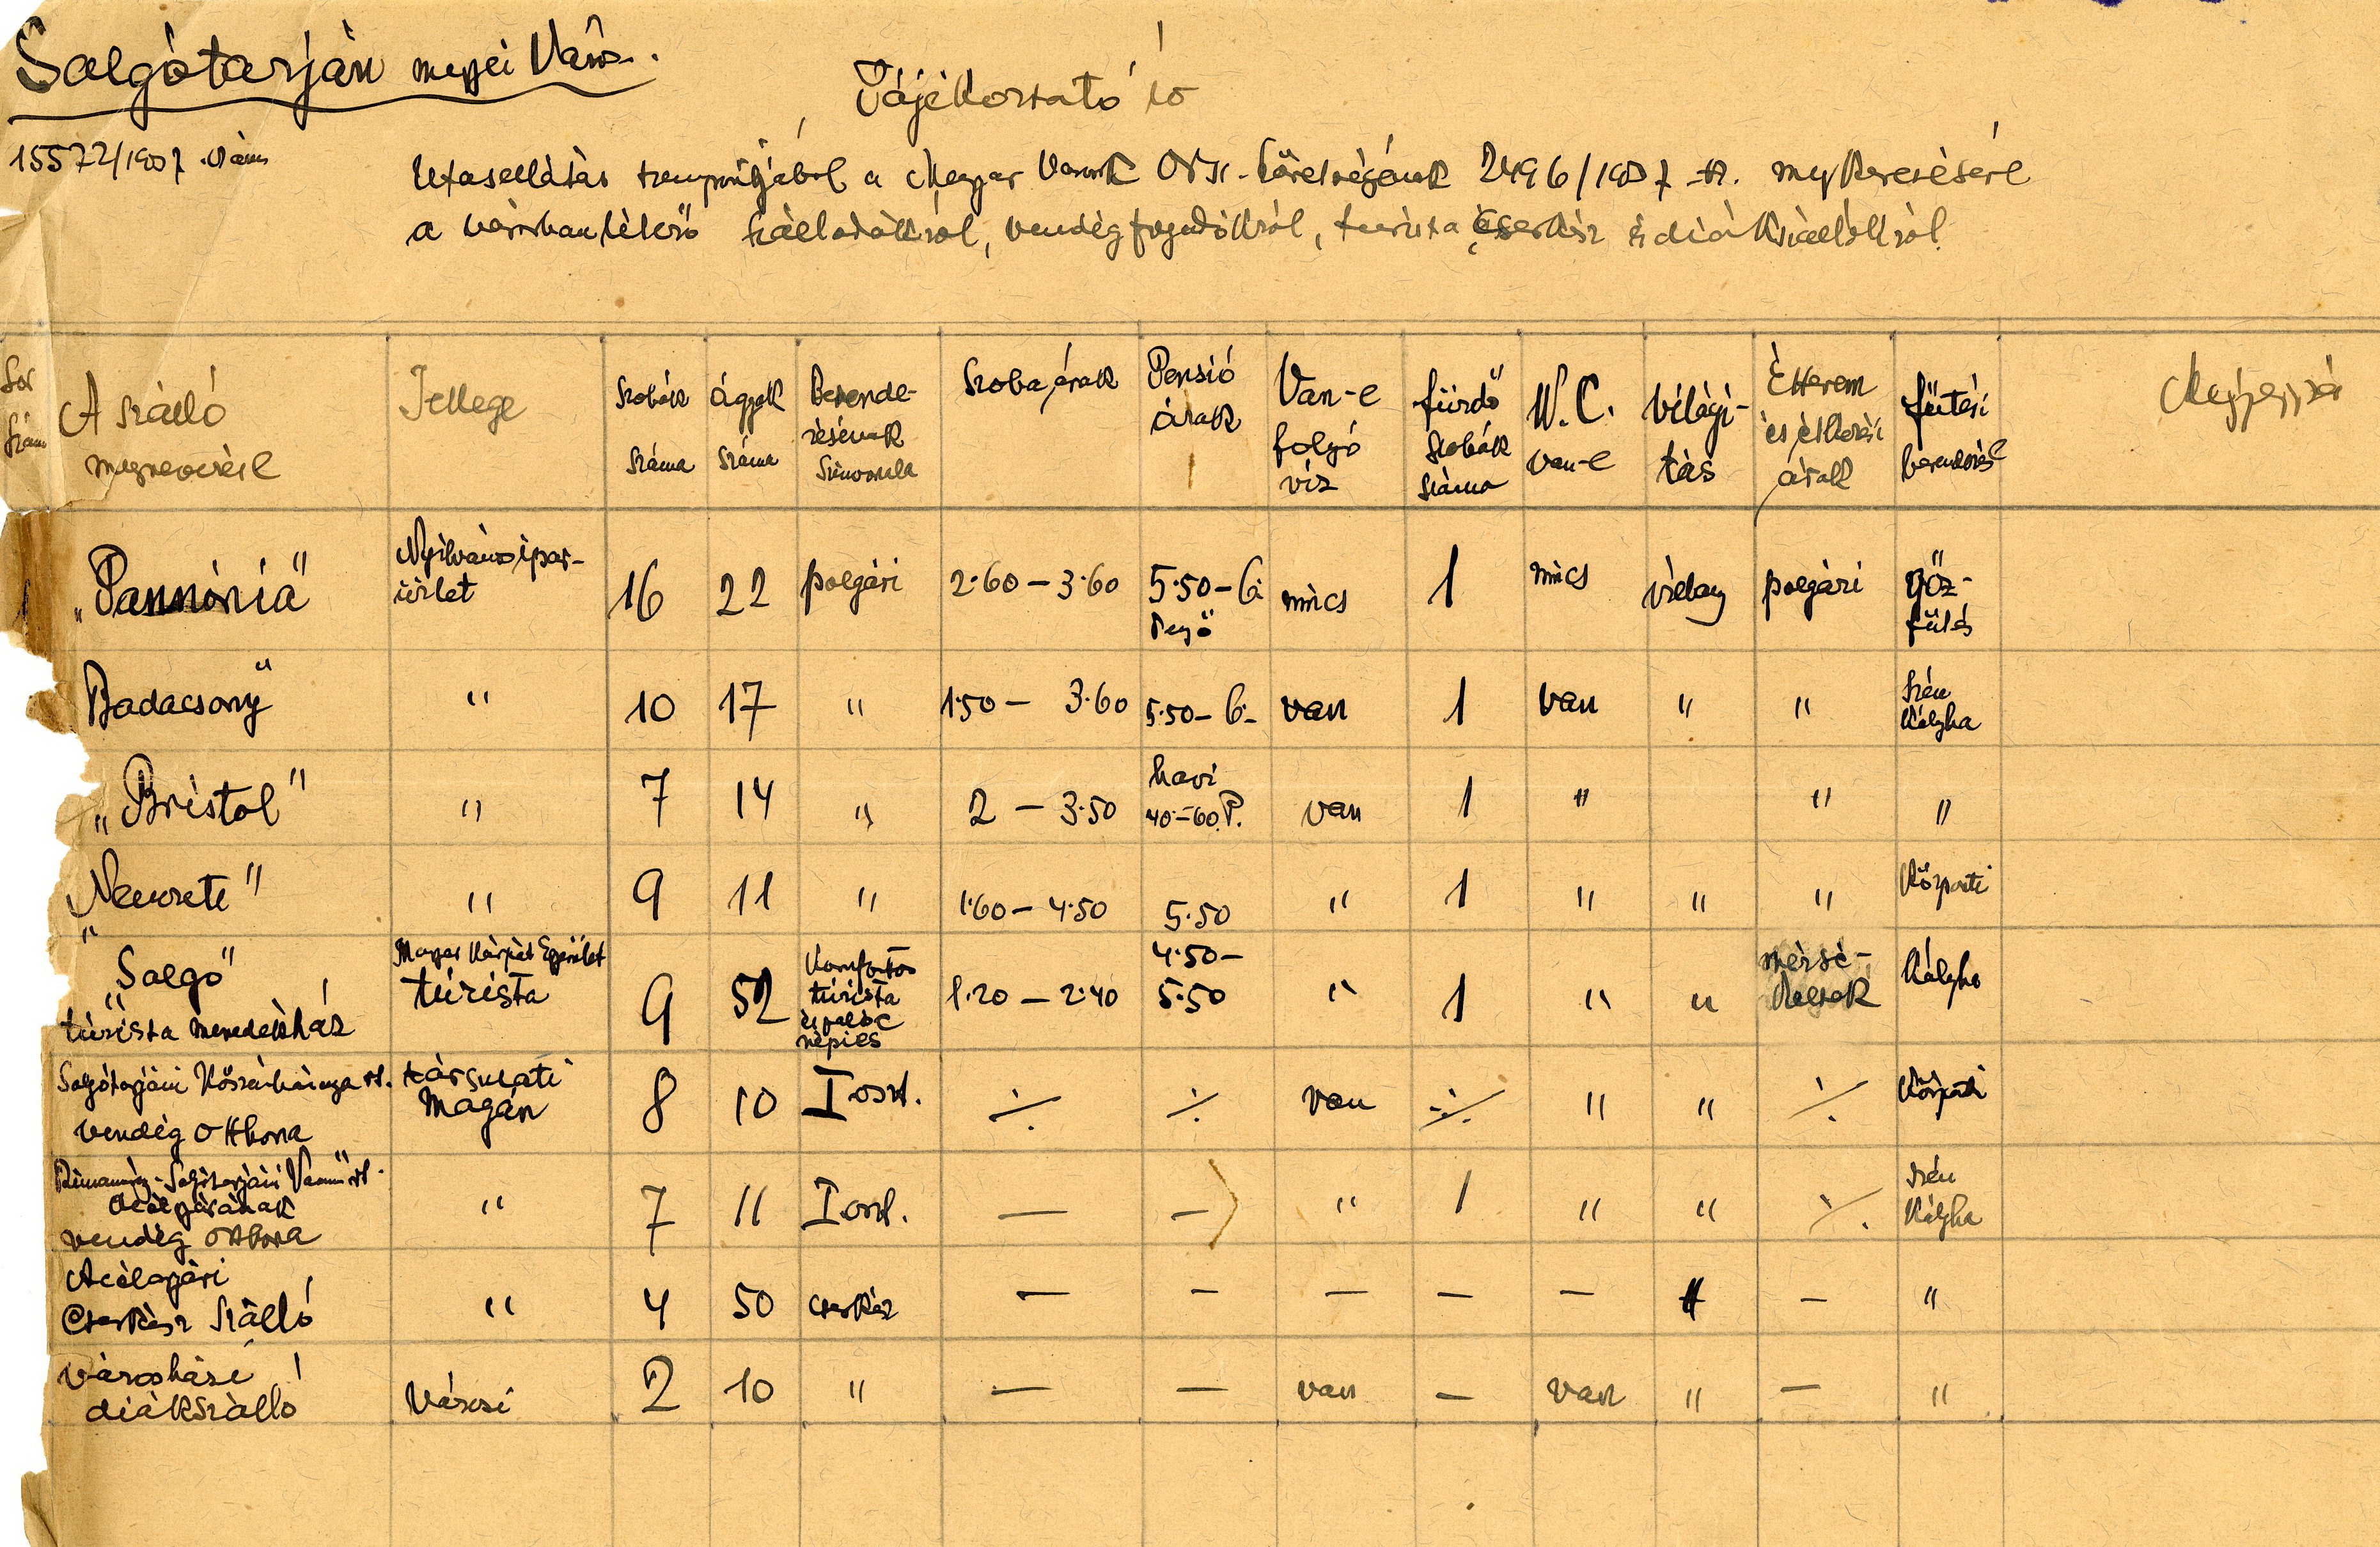 Salgótarján megyei Város.
Tájékoztató ív
15572/1937. szám
Utasellátás szempontjából a Magyar Városok Orsz. Szövetségének 2496/1937 -sz. megkeresésére
a városban lévő szállodákról, vendégfogadókról, turista cserkész és diákszállókról.
Sor szám
A szálló megnevezése
Jellege
Szobák száma
Ágyak száma
Berende- zésének színvonala
Szoba árak
Pensió árak
Van-e folyó víz
fürdő szobák száma
W.C. van-e
Világi- tás
Étterem és étkezési árak
fűtési berendezés
Megjegyzés
1 „Pannónia" Nyilvános ipar- üzlet 16 22 polgári 2·60 – 3·60 5·50 – 6· Pengő nincs 1 nincs villany polgári gőz- fűtés
Badacsony" " 10 17 " 1·50 – 3·60 5·50 – 6·– van 1 van " " Szén kályha
„Bristol" " 7 14 " 2 – 3·50 havi 40·–60 P. van 1 " " "
„Nemzeti" " 9 11 " 1·60 – 4·50 5·50 " 1 " " " Központi
„Salgó" turista menedékház Magyar Kárpát Egyesület túrista 9 52 Komfortos túrista és palóc népies 1·20 – 2·40 4·50 – 5·50 " 1 " " mérsé- keltek kályha
Salgótarjáni Kőszénbánya rt. vendég otthona társulati magán 8 10 I oszt. ⁒ ⁒ van ⁒ " " ⁒ Központi
Rimamurány-Salgótarjáni Vasmű rt. Acélgyárának vendég otthona " 7 11 I. oszt. — — " 1 " " ⁒ Szén kályha
Acélgyári Cserkész Szálló " 4 50 cserkész — — — — — " — "
Városházi diákszálló Városi 2 10 " — — van — van " — "